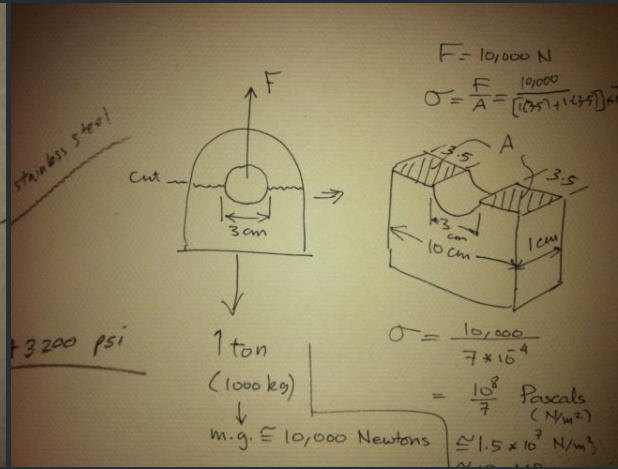 stainless steel
3200 psi
F
cut
3 cm
1 ton
(1000 kg)
m.g. ≅ 10,000 Newtons
F = 10,000 N
σ = F/A = 10,000/[1(3.5)+1(3.5)]
A
3.5
3.5
3 cm
10 cm
1 cm
σ = 10,000/7*10⁻⁴
= 10⁸/7 Pascals
(N/m²)
≅ 1.5 * 10⁷ N/m²